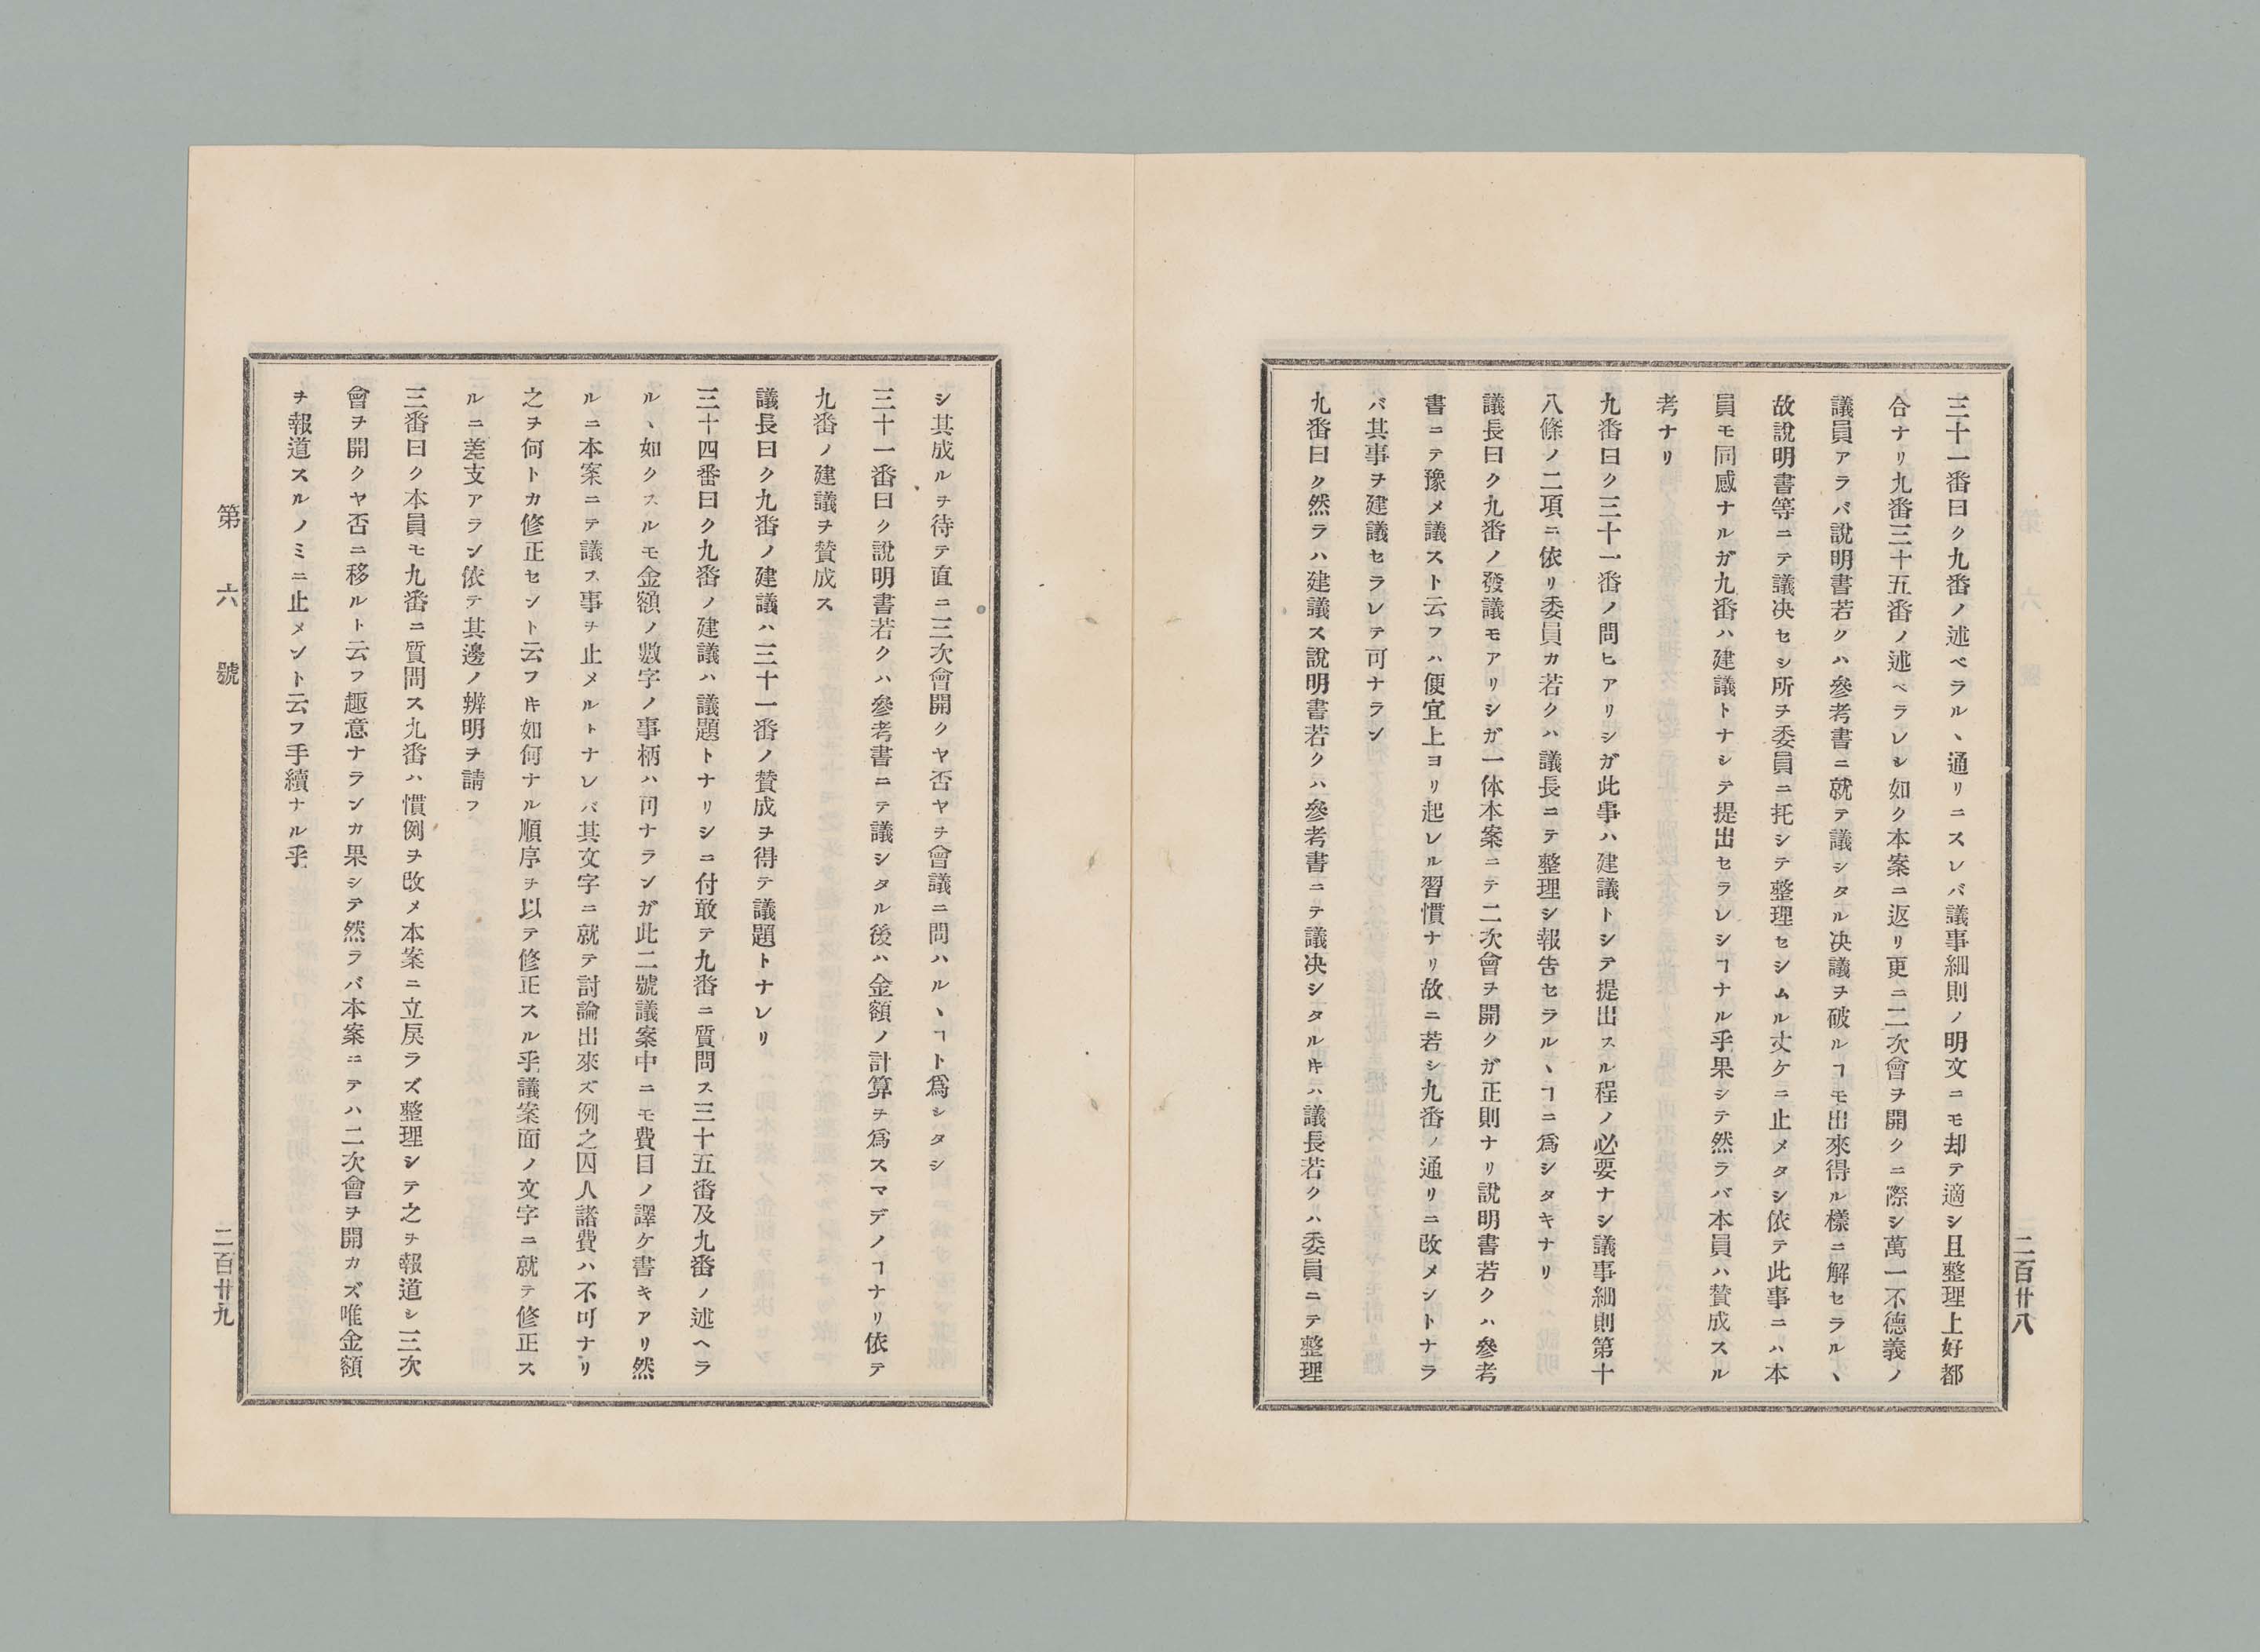 三十一番曰ク九番ノ述ベラル、通リニスレバ議事細則ノ明文ニモ却テ適シ且整理上好都
合ナリ九番三十五番ノ述ベラレシ如ク本案ニ返リ更ニ二次會ヲ開クニ際シ萬一不德義ノ
議員アラバ說明書若クハ參考書ニ就テ議シタル决議ヲ破ルヿモ出來得ル樣ニ解セラル、
故說明書等ニテ議决セシ所ヲ委員ニ托シテ整理セシムル丈ケニ止メタシ依テ此事ニハ本
員モ同感ナルガ九番ハ建議トナシテ提出セラレシヿナル乎果シテ然ラバ本員ハ賛成スル
考ナリ
九番曰ク三十一番ノ問ヒアリシガ此事ハ建議トシテ提出スル程ノ必要ナシ議事細則第十
八條ノ二項ニ依リ委員カ若クハ議長ニテ整理シ報告セラル、ヿニ爲シタキナリ
議長曰ク九番ノ發議モアリシガ一体本案ニテ二次會ヲ開クガ正則ナリ說明書若クハ參考
書ニテ豫メ議スト云フハ便宜上ヨリ起レル習慣ナリ故ニ若シ九番ノ通リニ改メントナラ
バ其事ヲ建議セラレテ可ナラン
九番曰ク然ラハ建議ス說明書若クハ參考書ニテ議决シタルキハ議長若クハ委員ニテ整理
二百廿八
シ其成ルヲ待テ直ニ三次會開クヤ否ヤヲ會議ニ問ハル、ヿト爲シタシ
三十一番曰ク說明書若クハ參考書ニテ議シタル後ハ金額ノ計算ヲ爲スマデノヿナリ依テ
九番ノ建議ヲ賛成ス
議長曰ク九番ノ建議ハ三十一番ノ賛成ヲ得テ議題トナレリ
三十四番曰ク九番ノ建議ハ議題トナリシニ付敢テ九番ニ質問ス三十五番及九番ノ述ヘラ
ル、如クスルモ金額ノ數字ノ事柄ハ可ナランガ此二號議案中ニモ費目ノ譯ケ書キアリ然
ルニ本案ニテ議ス事ヲ止メルトナレバ其文字ニ就テ討論出來ズ例之囚人諸費ハ不可ナリ
之ヲ何トカ修正セント云フキ如何ナル順序ヲ以テ修正スル乎議案面ノ文字ニ就テ修正ス
ルニ差支アラン依テ其邊ノ辨明ヲ請フ
三番曰ク本員モ九番ニ質問ス九番ハ慣例ヲ改メ本案ニ立戻ラズ整理シテ之ヲ報道シ三次
會ヲ開クヤ否ニ移ルト云フ趣意ナランカ果シテ然ラバ本案ニテハ二次會ヲ開カズ唯金額
ヲ報道スルノミニ止メント云フ手續ナル乎
第六號
二百廿九